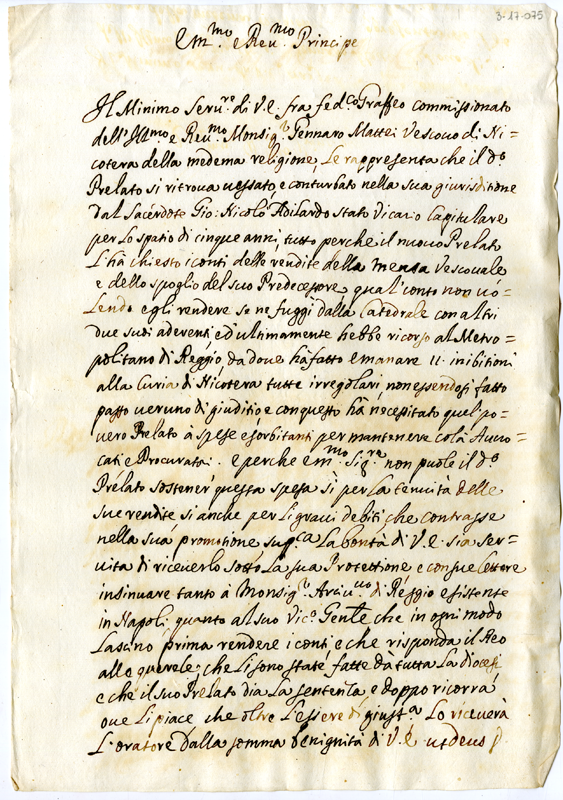 3-17-075
Em.mo e Reu.mo Principe
Il Minimo Seru.re di V.E. fra fed.co Graffeo commissionato
dell'Ill.mo e Reu.mo Monsig.r Gennaro Mattei Vescouo di Ni=
cotera della medema religione, Le rappresenta che il d.o
Prelato si ritroua uessato, e conturbato nella sua giurisditione
dal Sacerdote Gio: Nicolò Adilardo stato Vicario Capitulare
per lo spatio di cinque anni, tutto perche il nuouo Prelato
L'hà chiesto i conti delle rendite della mensa Vescouale
e dello spoglio del suo Predecessore qual'conto non uo=
lendo egli rendere se ne fuggì dalla Catedrale con altri
due suoi aderenti, ed'ultimamente hebbe ricorso al Metro=
politano di Reggio, da doue hà fatto emanare 11. inibitioni
alla Curia di Nicotera tutte irregolari, non essendosi fatto
passo ueruno di giuditio, e con questo hà necessitato quel po=
uero Prelato à spese esorbitanti per mantenere colà Auuo=
cati e Procuratori. e perche em.mo Sig.re non puole il d.o
Prelato sostener questa spesa sì per la tenuità delle
sue rendite si anche per li graui debiti che contrasse
nella sua promotione sup.ca La bontà di V.E. sia ser=
uita di riceuerlo sotto La sua Protettione e con sue lettere
insinuare tanto à Monsig.r Arciu.uo di Reggio esistente
in Napoli quanto al suo Vic.o Gen.le che in ogni modo
Lascino prima rendere i conti, e che risponda il Reo
alle querele, che li sono state fatte dà tutta La diocesi
e che il suo Prelato dia La sentenza e doppo ricorra
oue Li piace che oltre l'essere di giust.a Lo riceuerà
L'oratore dalla somma benignità di V.E. ut deus